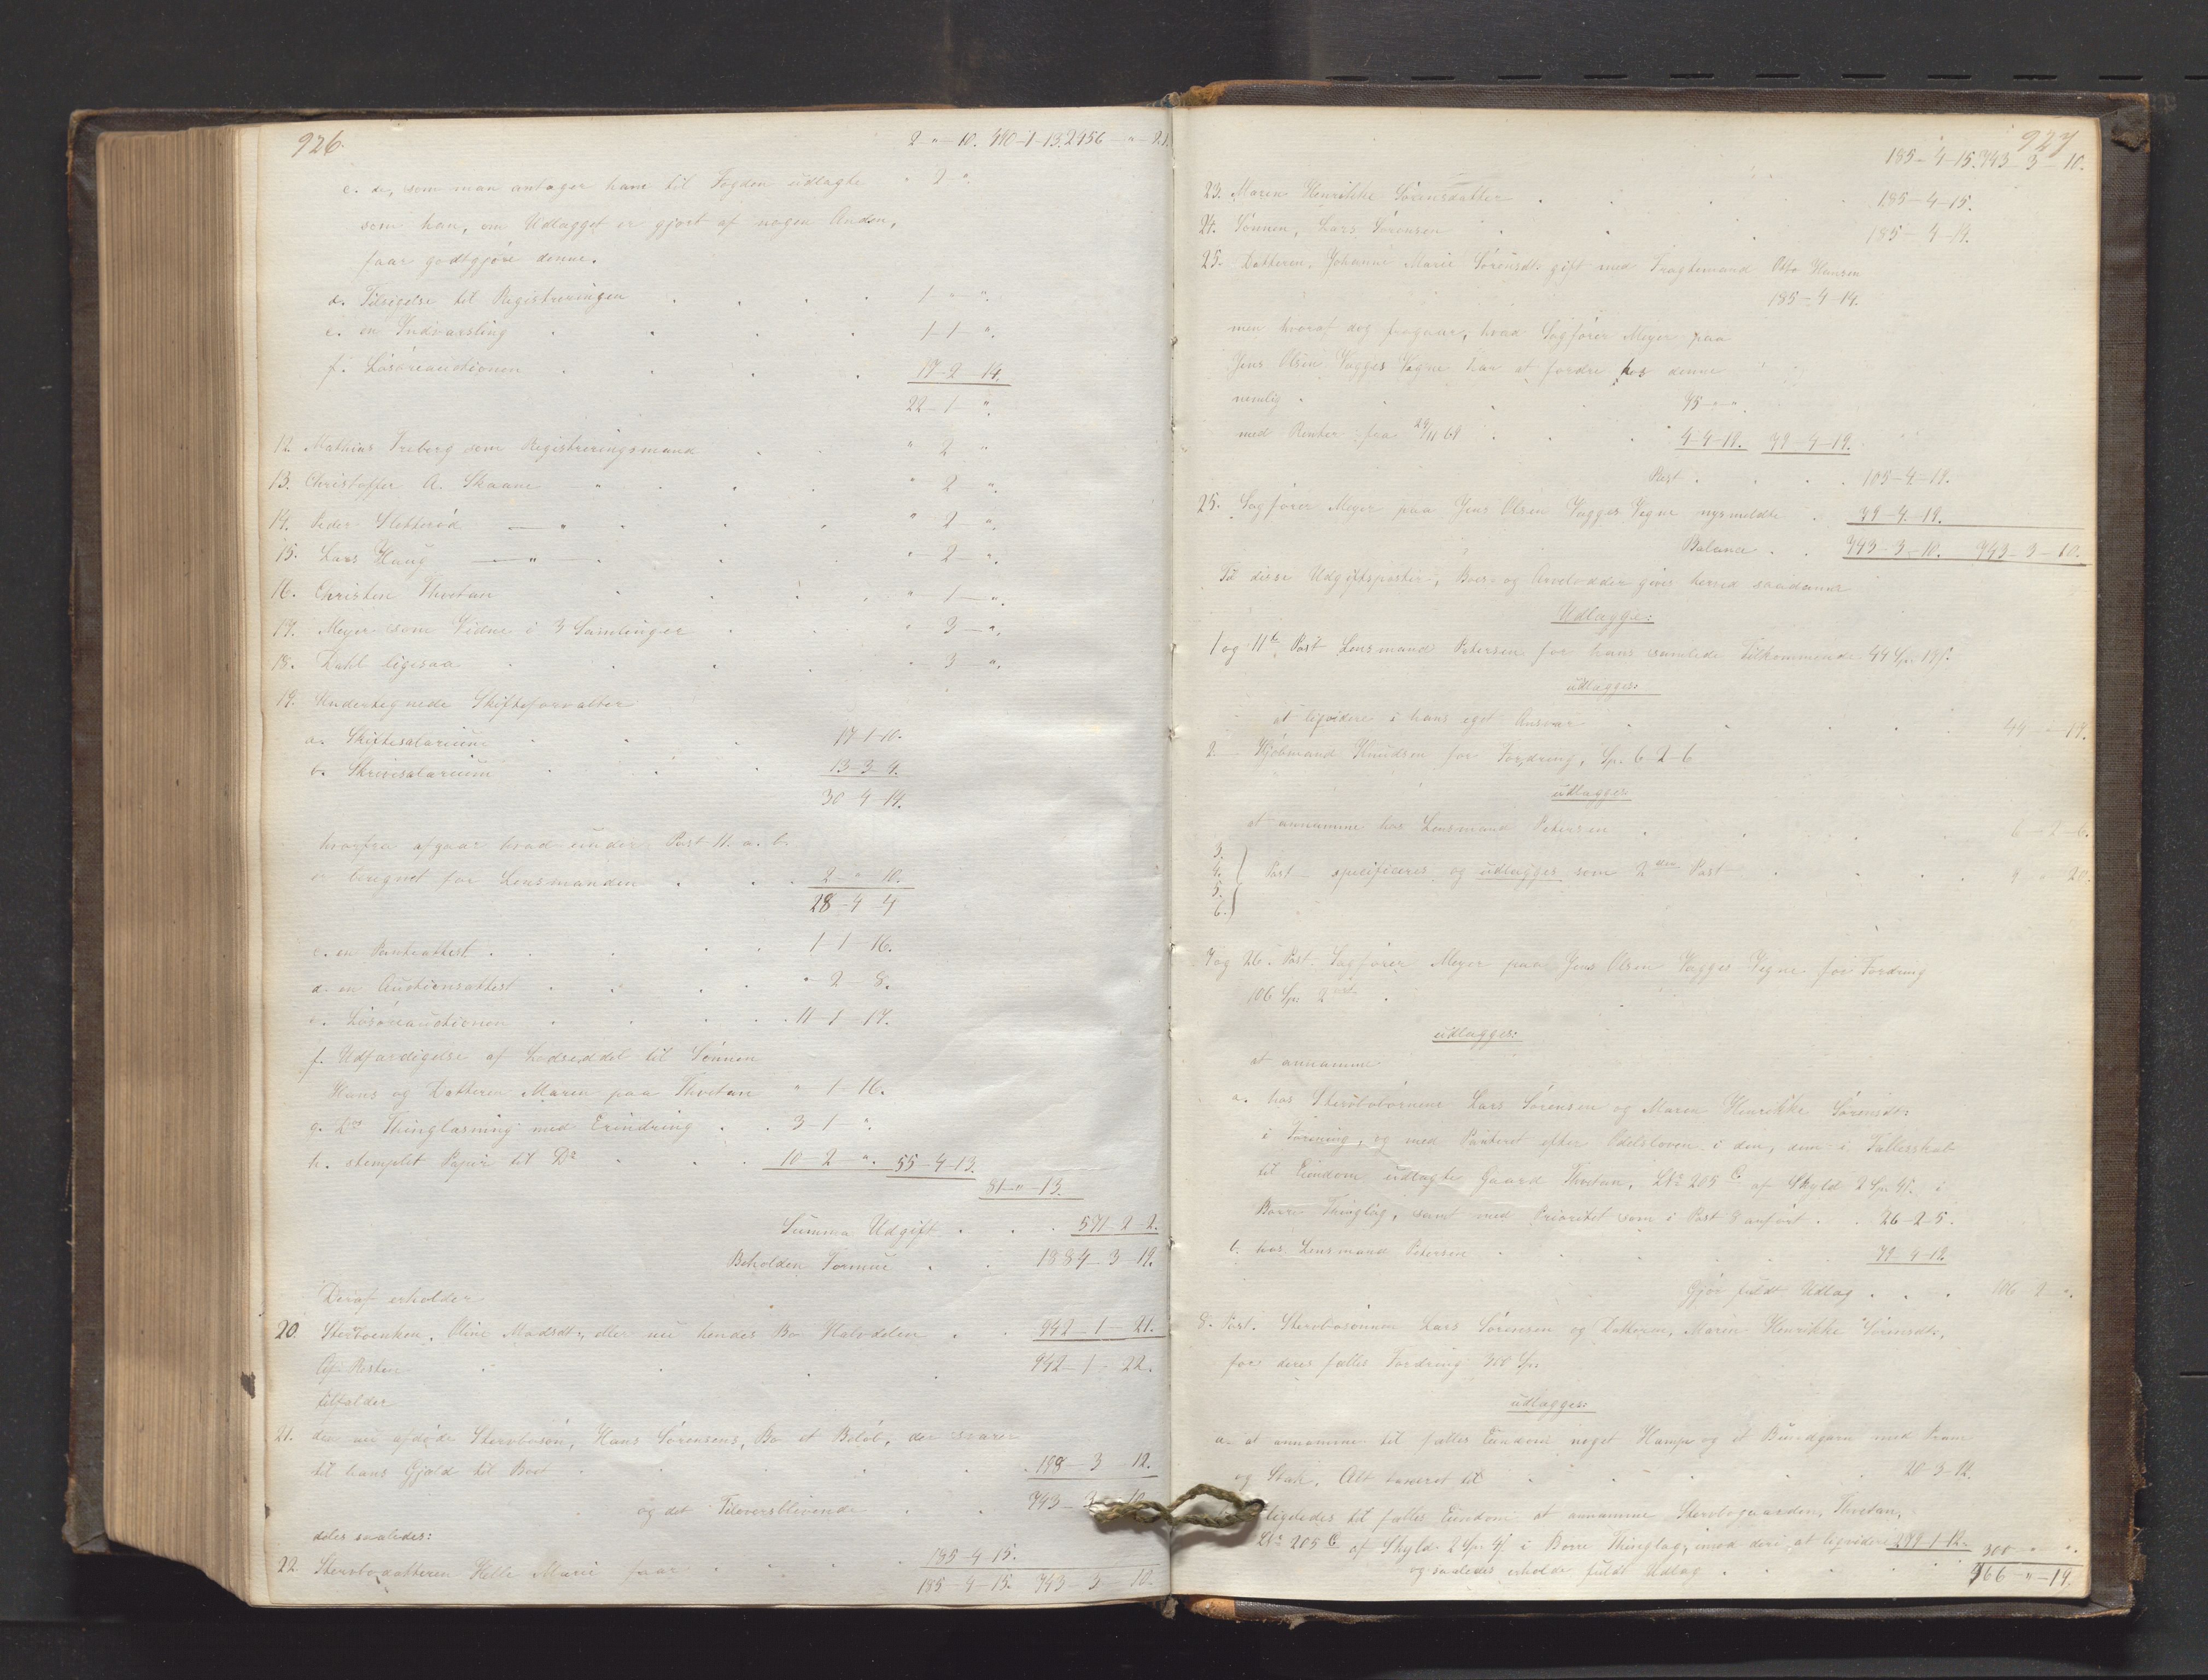 926.
2 - " - 10. 490 - 1 - 13. 2456 - " - 21.
c. de, som man antager have til Fogden udlagte " 2 - ".
som han, om Udlægget er gjort af nogen Anden,
faar godtgjøre denne.
d. Tilsigelse til Registreringen . . . . 1 - " - ".
e. en Indvarsling . . . . 1 - 1 - ".
f. Løsøreauctionen . . . . 17 - 2 - 14.
22 - 1 - ".
12. Mathias Freberg som Registreringsmand . . " 2 - "
13. Christoffer A. Skaane - " - . . " 2 - ".
14. Peder Sletterød - " - . . " 2 - ".
15. Lars Haug - " - . . " 2 - ".
16. Christen Thvetan . . . . " 1 - ".
17. Meyer som Vidne i 3 Samlinger . . . " 3 - ".
18. Dahl ligesaa . . . . " 3 - ".
19. Undertegnede Skifteforvalter
a. Skiftesalarium . . . 17 - 1 - 10.
b. Skrivesalarium . . . 13 - 3 - 4.
30 - 4 - 14.
hvorfra afgaar hvad under Post 11. a. b.
er beregnet for Lensmanden . . . 2 - " - 10.
28 - 4 - 4
c. en Panteattest . . . . 1 - 1 - 16.
d. en Auctionsattest . . . . " 2 - 8.
e. Løsøreauctionen . . . . 11 - 1 - 17.
f. Udfærdigelse af Lodseddel til Sønnen
Hans og Datteren Maren paa Thvetan " 1 - 16.
g. Ds Thinglæsning med Erindring . . 3 - 1 - ".
h. stemplet Papir til Do . . . 10 - 2 - ". 55 - 4 - 13.
81 - " - 13.
Summa Udgift . . . 571 - 2 - 2.
Beholden Formue . . 1884 - 3 - 19.
Deraf erholder
20. Sterboenken, Oline Madsdt., eller nu hendes Bo Halvdelen . . 942 - 1 - 21.
Af Resten . . . . 942 - 1 - 22.
tilfalder
21. den nu afdøde Sterbosøn, Hans Sørensens, Bo et Beløb, der svarer
til hans Gjæld til Boet . . . . 198 - 3 - 12.
og det Tiloversblivende . . 743 - 3 - 10.
deles saaledes:
22. Sterbodatteren Helle Marie faar . . . . 185 - 4 - 15.
185 - 4 - 15. 743 - 3 - 10.
927
185 - 4 - 15. 743 - 3 - 10.
23. Maren Henrikke Sørensdatter . . . . 185 - 4 - 15.
24. Sønnen, Lars Sørensen . . . 185 - 4 - 14.
25. Datteren Johanne Marie Sørensdt. gift med Fragtemand Otto Hansen
185 - 4 - 14.
men hvoraf dog fragaar, hvad Sagfører Meyer paa
Jens Olsen Vagges Vegne har at fordre hos denne
nemlig . . . 75 - " - ".
med Renter fra 29/11 69 . . . 4 - 4 - 19. 79 - 4 - 19.
Rest . . . . 105 - 4 - 19.
25. Sagfører Meyer paa Jens Olsen Vagges Vegne nysmeldte . 79 - 4 - 19.
Balance . . 743 - 3 - 10. 743 - 3 - 10.
Til disse Udgiftsposter, Boer og Arvelodder gives herved saadanne
Udlægge:
1 og 11te Post Lensmand Petersen for hans samlede Tilkommende 44 Sp. 19 s.
udlægges:
at liqvidere i hans eget Ansvar . . . . 44 - " - 19.
2 - Kjøbmand Knudsen for Fordring, Sp. 6 - 2 - 6
udlægges
at annamme hos Lensmand Petersen . . . . 6 - 2 - 6.
3.
4.
5.
6.
Post specificeres og udlægges som 2den Post . . . . 9 " 20.
7 og 26. Post. Sagfører Meyer paa Jens Olsen Vagges Vegne for Fordring
106 Sp. 2 ort .
udlægges:
at annamme
a. hos Sterbobørnene Lars Sørensen og Maren Henrikke Sørensdt.
i Forening, og med Panteret efter Odelsloven i den, dem i Fællesskab
til Eiendom udlagte Gaard Thvetan, LNo 205 C. af Skyld 2 Sp. 4 s. i
Borre Thinglag, samt med Prioritet som i Post 8 anført . . 26 - 2 - 5.
b. hos Lensmand Petersen . . . . 79 - 4 - 19.
Gjør fuldt Udlag . . . 106 - 2 - ".
8. Post. Sterbosønnen Lars Sørensen og Datteren, Maren Henrikke Sørensdt.,
for deres fælles Fordring 300 Sp.
udlægges:
a. at annamme til fælles Eiendom noget Hampe og et Bundgarn med Pram
og Stak, Alt taxeret til . . . . 20 - 3 - 12.
ligeledes til fælles Eiendom at annamme Sterbogaarden, Thvetan,
LNo 205 C. af Skyld 2 Sp. 4 s. i Borre Thinglag, imod deri at liqvidere 279 - 1 - 12. 300 " ".
og saaledes erholde fuldt Udlag . . . . 466 - " - 14.